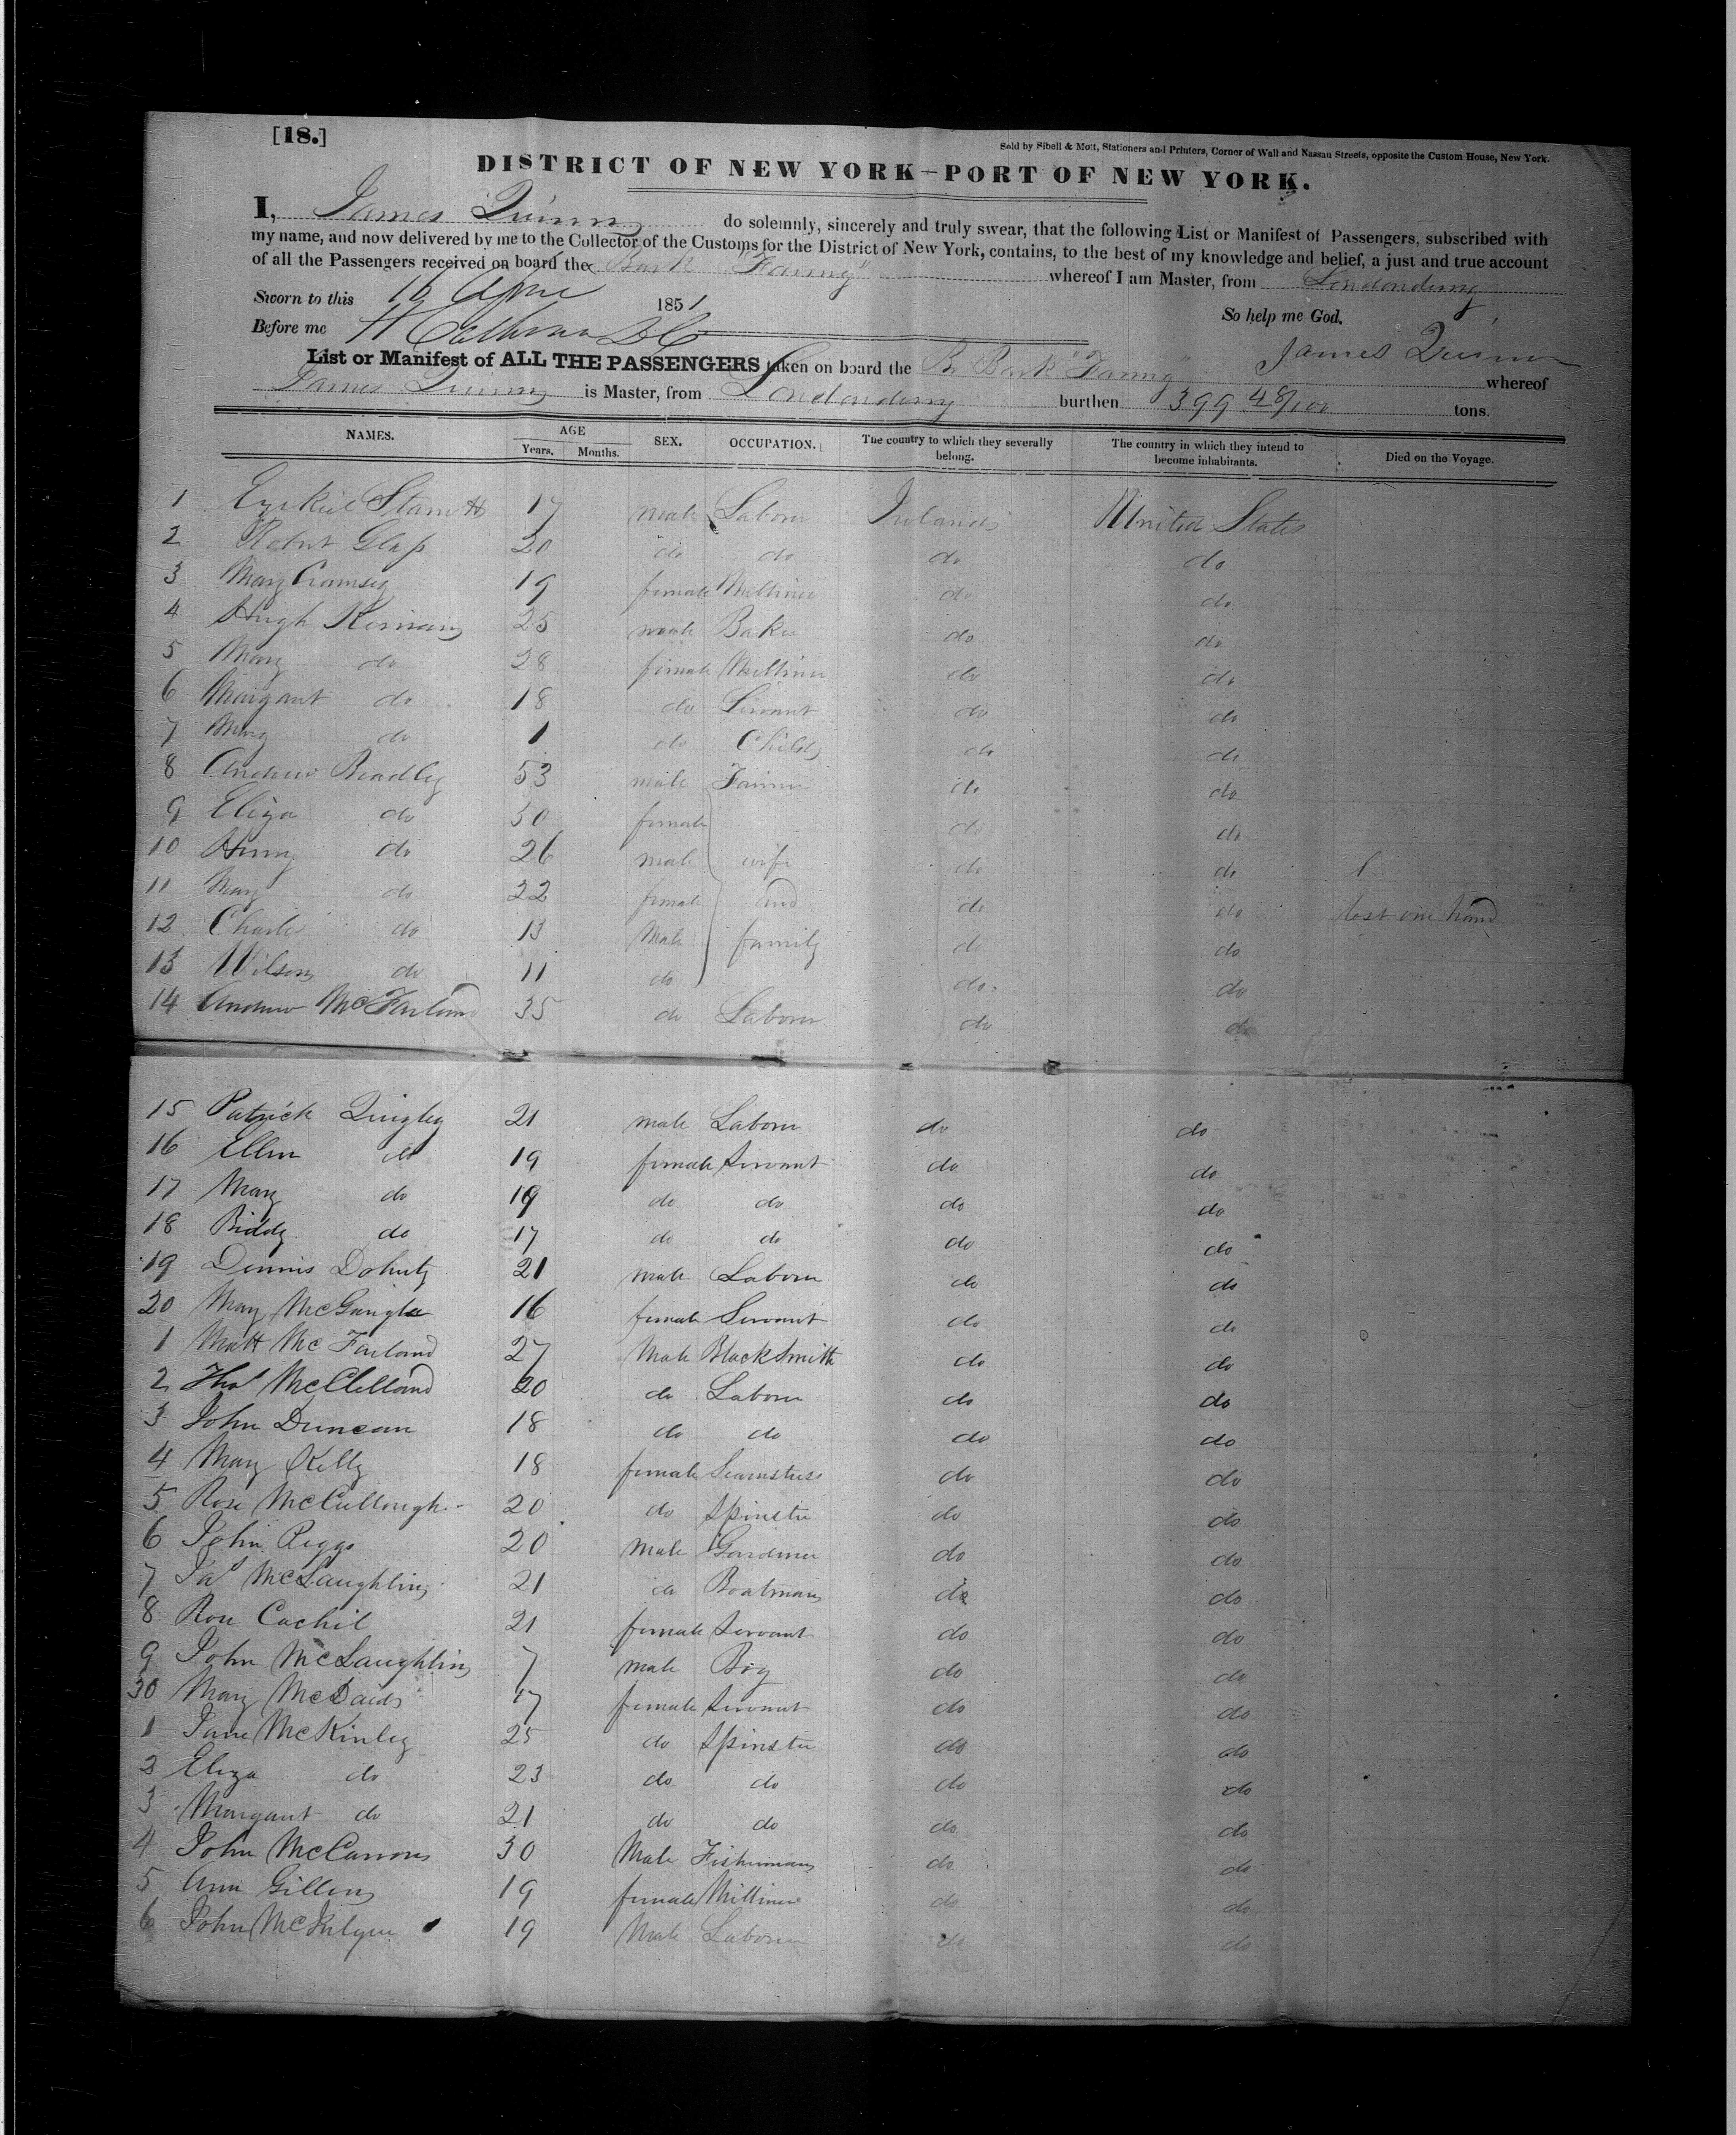 [18.]
Sold by Sibell & Mott, Stationers and Printers, Corner of Wall and Nassau Streets, opposite the Custom House, New York.
DISTRICT OF NEW YORK—PORT OF NEW YORK.
I, James Quinn do solemnly, sincerely and truly swear, that the following List or Manifest of Passengers, subscribed with
my name, and now delivered by me to the Collector of the Customs for the District of New York, contains, to the best of my knowledge and belief, a just and true account
of all the Passengers received on board the Bark "Fanny" whereof I am Master, from Londonderry
Sworn to this 16 April 1851 So help me God,
Before me James Quinn
List or Manifest of ALL THE PASSENGERS taken on board the Br Bark "Fanny" whereof
James Quinn is Master, from Londonderry burthen 399 48/100 tons.
NAMES. AGE Years. Months. SEX. OCCUPATION. The country to which they severally belong. The country in which they intend to become inhabitants. Died on the Voyage.
1 17 male Laborer Ireland United States
2 Robert Glass 20 do do do do
3 Mary 19 female Milliner do do
4 Hugh 25 male Baker do do
5 Mary do 28 female Milliner do do
6 Margaret do 18 do Servant do do
7 Mary do 1 do Child do do
8 Andrew Bradley 53 male Farmer do do
9 Eliza do 50 female do do
10 Henry do 26 male wife do do 1
11 Mary do 22 female and do do lost one hand
12 Charles do 13 Male family do do
13 Wilson do 11 do do do
14 Andrew McFarland 35 do Laborer do do
15 Patrick Quigley 21 male Laborer do do
16 Ellen do 19 female Servant do do
17 Mary do 19 do do do do
18 Biddy do 17 do do do do
19 Dennis Doherty 21 male Laborer do do
20 Mary McGonigle 16 female Servant do do
1 Matt McFarland 27 Male Blacksmith do do
2 Thos McClelland 20 do Laborer do do
3 John Duncan 18 do do do do
4 Mary Kelly 18 female Seamstress do do
5 Rose McCullough 20 do Spinster do do
6 John Riggs 20 male Gardener do do
7 Jas McLaughlin 21 do Boatman do do
8 Rose Cachil 21 female Servant do do
9 John McLaughlin 7 male Boy do do
30 Mary McDaid 17 female Servant do do
1 Jane McKinley 25 do Spinster do do
2 Eliza do 23 do do do do
3 Margaret do 21 do do do do
4 John McCarron 30 Male Fisherman do do
5 Ann Gillen 19 female Milliner do do
6 John 19 Male Laborer do do